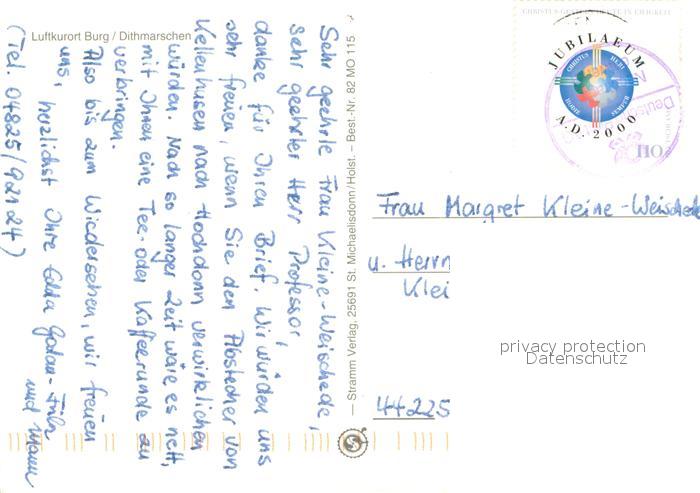 Luftkurort Burg / Dithmarschen
Sehr geehrte Frau Kleine-Weischede,
sehr geehrter Herr Professor,
danke für Ihren Brief. Wir würden uns
sehr freuen, wenn Sie den Abstecher von
Kellenhusen nach Hochdonn verwirklichen
würden. Nach so langer Zeit wäre es nett,
mit Ihnen eine Tee- oder Kaffeerunde zu
verbringen.
Also bis zum Wiedersehen, wir freuen
uns,
herzlichst Ihre Edda
und Mann
(Tel. 04825/92124)
— Stramm Verlag, 25691 St. Michaelisdonn/Holst. – Best.-Nr. 82 MO 115
CHRISTUS GESTERN HEUTE IN EWIGKEIT
JUBILAEUM
A.D. 2000
CHRISTUS HERI
HODIE SEMPER
110
Frau Margret Kleine-Weischede
u. Herrn
Klei
44225
privacy protection
Datenschutz